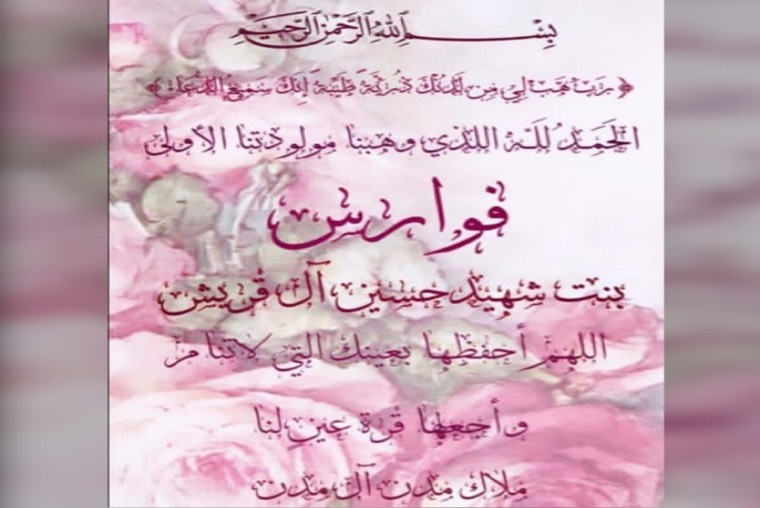 بسم الله الرحمن الرحيم
﴿ رَبِّ هَبْ لِي مِن لَّدُنكَ ذُرِّيَّةً طَيِّبَةً إِنَّكَ سَمِيعُ الدُّعَاءِ ﴾
الحَمدُ للهِ اللذي وهبنا مولودتنا الأولى
فوارس
بنت شهيد حسين آل قريش
اللهم أحفظها بعينك التي لاتنا مز
وأجعلها قرة عين لنا
ملاك مدن آل مدن